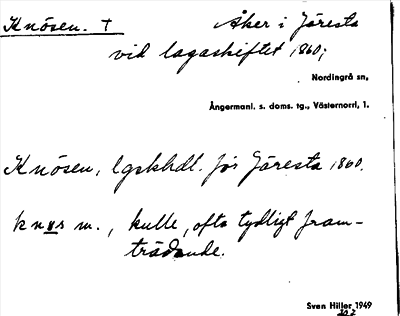 Knösen. † Åker i Järesta
vid lagaskiftet 1860;
Nordingrå sn,
Ångermanl. s. doms. tg., Västernorrl, 1.
Knösen, lgskhdl. för Järesta 1860.
knøs m., kulle, ofta tydligt fram-
trädande.
Sven Hiller 1949